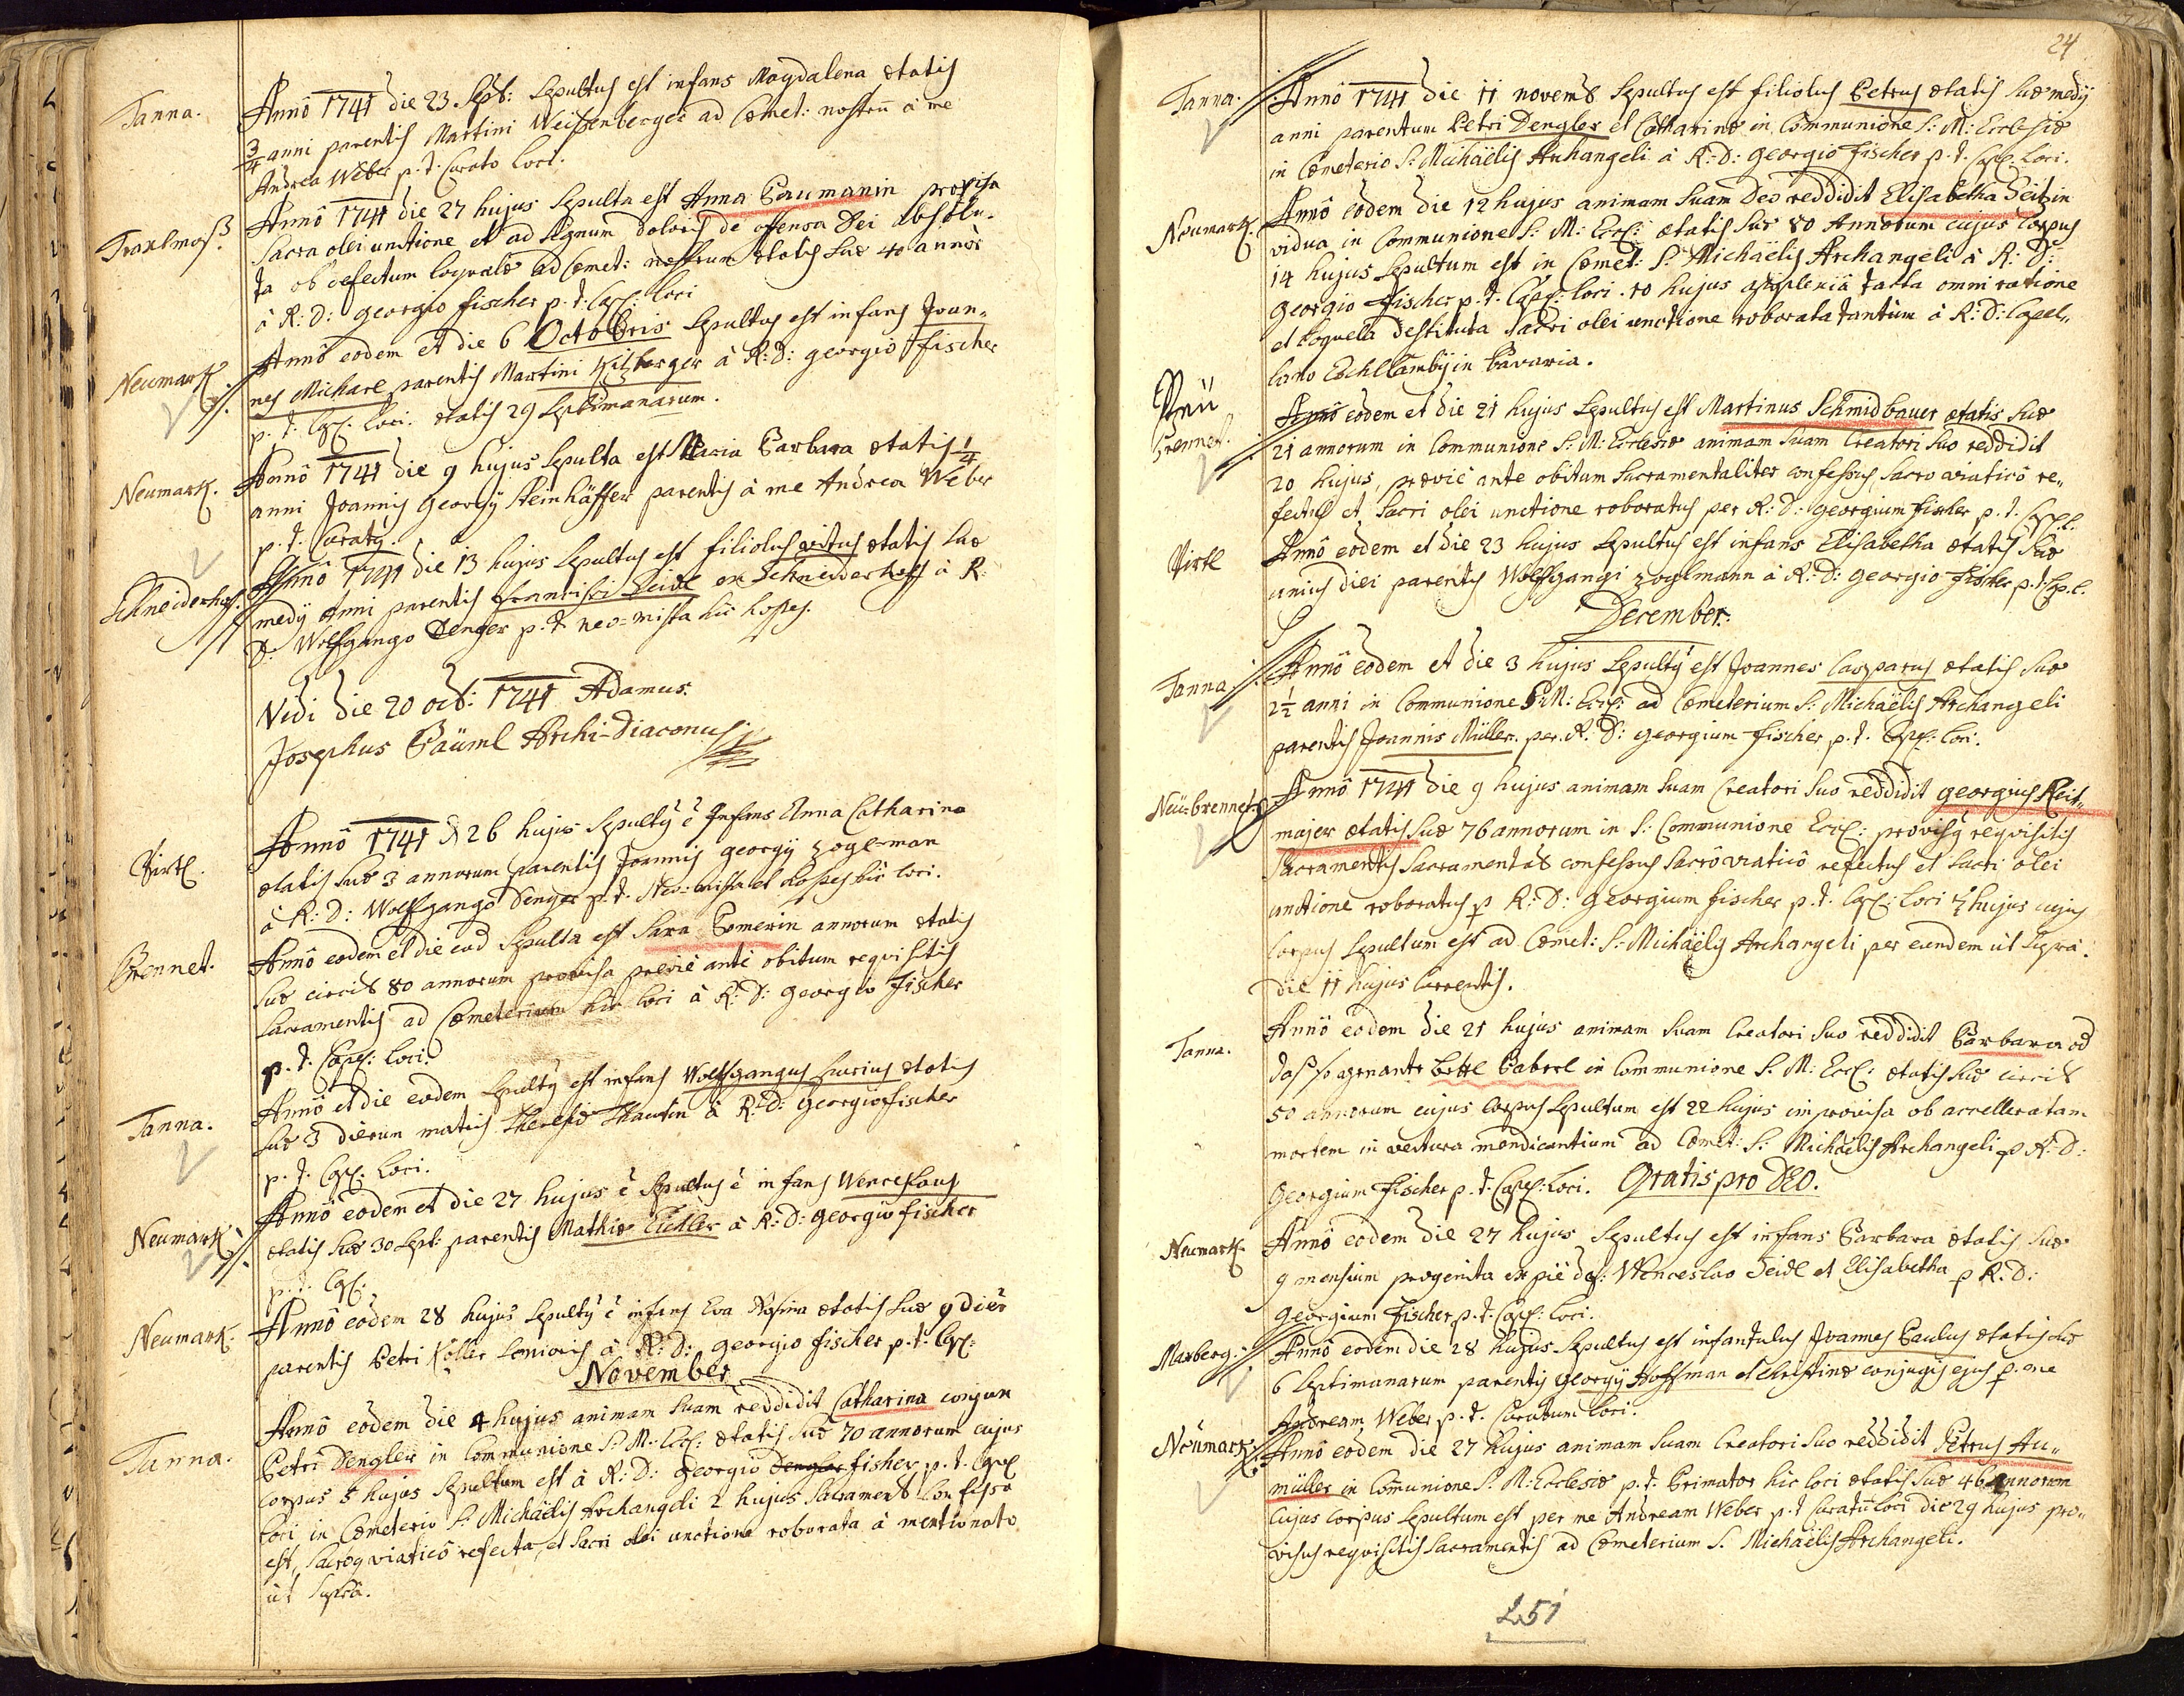 Tanna.
Anno 1741 die 23 Sept: Sepultus est infans Magdalena ætatis
3/4 anni parentis Martini Weißenberger ad Cœmet: nostrū à me
Andrea Weber p. t. Curato loci.
Anno 1741 die 27 hujus Sepulta est Anna Baumanin provisa
Sacra olei unctione et ad Signum doloris de offensa Dei absolu-
ta ob defectum loquelæ ad Cœmet: nostrum ætatis suæ 40 annor
à R: D: Georgio Fischer p. t. Cap: loci
Neumark.
Anno eodem et die 6 Octobris Sepultus est infans Joan-
nes Michael parentis Martini à R: D: Georgio Fischer
p. t. Cap: loci. ætatis 29 Septimanarum.
Neumark.
Anno 1741 die 9 hujus Sepulta est Maria Barbara ætatis 1/4
anni Joannis Georgÿ Steinhäffer parentis à me Andrea Weber
p. t. Curatꝰ.
Schneiderhof.
Anno 1741 die 13 hujus Sepultus est filiolus Vitus ætatis suæ
medÿ Anni parentis Francisci Seidl ex Schneiderhoff à R:
D: Wolfgango Denger p. t. neo-mista hic hospes.
Vidi die 20 oct: 1741 Adamus
Josephus Bäuml Archi-Diaconus
Virtl.
Anno 1741 D 26 hujus Sepultꝰ ē Infans Anna Catharina
ætatis suæ 3 annorum parentis Joannis Georgÿ Zogl-man
à R: D: Wolffgango Denger p. t. Neo-mista et hospes hic loci.
Brennet.
Anno eodem et die eod Sepulta est Sara Bomerin annorum ætatis
suæ circit 80 annorum provisa prævie ante obitum requisitis
Sacramentis ad Cœmeterium hic loci à R: D: Georgio Fischer
p. t. Cap: loci.
Tanna.
Anno et die eodem Sepultꝰ est infans Wolffgangus ætatis
suæ 3 dierum matris Theresiæ à R: D: Georgio Fischer
p. t. Cap: loci.
Neumark
Anno eodem et die 27 hujus ē Sepultus ē infans Wenceslaus
ætatis suæ 30 Sept: parentis Mathiæ à R: D: Georgio Fischer
p. t. Cap:
Neumark.
Anno eodem 28 hujus Sepultꝰ ē infans Eva Rosina ætatis suæ 9 dier
parentis Petri Koller à R: D: Georgio Fischer p. t. Cap:
November
Tanna.
Anno eodem die 4 hujus animam suam reddidit Catharina conjux
Petri Dengler in Communione S: M: Eccl: ætatis suæ 70 annorum cujus
corpus 5 hujus Sepultum est à R: D: Georgio Dengler Fisher p. t. Cap
loci in Cœmeterio S: Michaëlis Archangeli 2 hujus Sacrament Confessa
est, Sacroq viatico refecta, et Sacri olei unctione roborata à mentionato
ut supra.
24
Tanna.
Anno 1741 die 11 novemb Sepultus est filiolus Petrus ætatis suæ medÿ
anni parentum Petri Dengler et Catharinæ in Communione S: M: Ecclesiæ
in Cœmeterio S: Michaëlis Archangeli à R: D: Georgio Fischer p. t. Cap: loci.
Neumark.
Anno eodem die 12 hujus animam suam Deo reddidit Elisabetha Seitzin
vidua in Communione S: M: Eccl: ætatis suæ 80 Annorum cujus Corpus
14 hujus Sepultum est in Cœmet: S: Michaëlis Archangeli à R: D:
Georgio Fischer p. t. Cap: loci. 10 hujus tacta omni ratione
et loquela destituta Sacri olei unctione roborata tantùm à R: D: Capel-
lano in Bavaria.
Neü
Brennet.
Anno eodem et die 21 hujus Sepultus est Martinus Schmidbauer ætatis suæ
21 annorum in Communione S: M: Ecclesiæ animam suam Creatori suo reddidit
20 hujus, prævie ante obitum Sacramentaliter confessus, Sacro viatico re-
fectus et Sacri olei unctione roboratus per R: D: Georgium Fischer p. t. Cap: l.
Virtl
Anno eodem et die 23 hujus Sepultus est infans Elisabetha ætatis suæ
unius diei parentis Wolffgangi Zoglmann à R: D: Georgio Fischer p. t. Cap. l.
December.
Tanna
Anno eodem et die 3 hujus Sepultꝰ est Joannes Casparus ætatis suæ
2 1/2 anni in Communione S: M: Eccl: ad Cœmeterium S: Michaëlis Archangeli
parentis Joannis Müller. per. R: D: Georgium Fischer p. t. Cap: loci.
Neü-brennet
Anno 1741 die 9 hujus animam suam Creatori suo reddidit Georgius Reit-
majer ætatis suæ 76 annorum in S: Communione Eccl: provisꝰ requisitis
Sacramentis Sacramentas confessus Sacro viatico refectus et Sacri olei
unctione roboratus p R: D: Georgium Fischer p. t. Cap: loci 7 hujus cujus
Corpus Sepultum est ad Cœmet: S: Michaëlis Archangeli per eundem ut Supra.
die 11 hujus Currentis.
Tanna.
Anno eodem die 21 hujus animam suam Creatori suo reddidit Barbara
Baberl in Communione S. M: Eccl: ætatis suæ circit
50 annorum cujus Corpus Sepultum est 22 hujus improvisa ob accelleratam
mortem in vectura mendicantium ad Cœmet: S: Michaëlis Archangeli p R: D:
Georgium Fischer p. t. Cap: loci. Gratis pro DEO.
Neumark.
Anno eodem die 27 hujus Sepultus est infans Barbara ætatis suæ
9 mensium progenita ex pie def: Wenceslao Seidl et Elisabetha p R. D:
Georgium Fischer p. t. Cap: loci.
Maxberg.
Anno eodem die 28 hujus Sepultus est infantulus Joannes Paulus ætatis suæ
6 Septimanarum parentis Georgÿ Hoffman et Christinæ conjugis ejus p. me
Andream Weber p. t. Curatum loci.
Neümark.
Anno eodem die 27 hujus animam suam Creatori suo reddidit Petrus Au-
müller in Comunione S. M. Ecclesiæ p. t. Primator hic loci ætatis suæ 46 Annorum
Cujus Corpus Sepultum est per me Andream Weber p. t Curatū loci die 29 hujus pro-
visus requisitis Sacramentis ad Cœmeterium S. Michaëlis Archangeli.
L.51